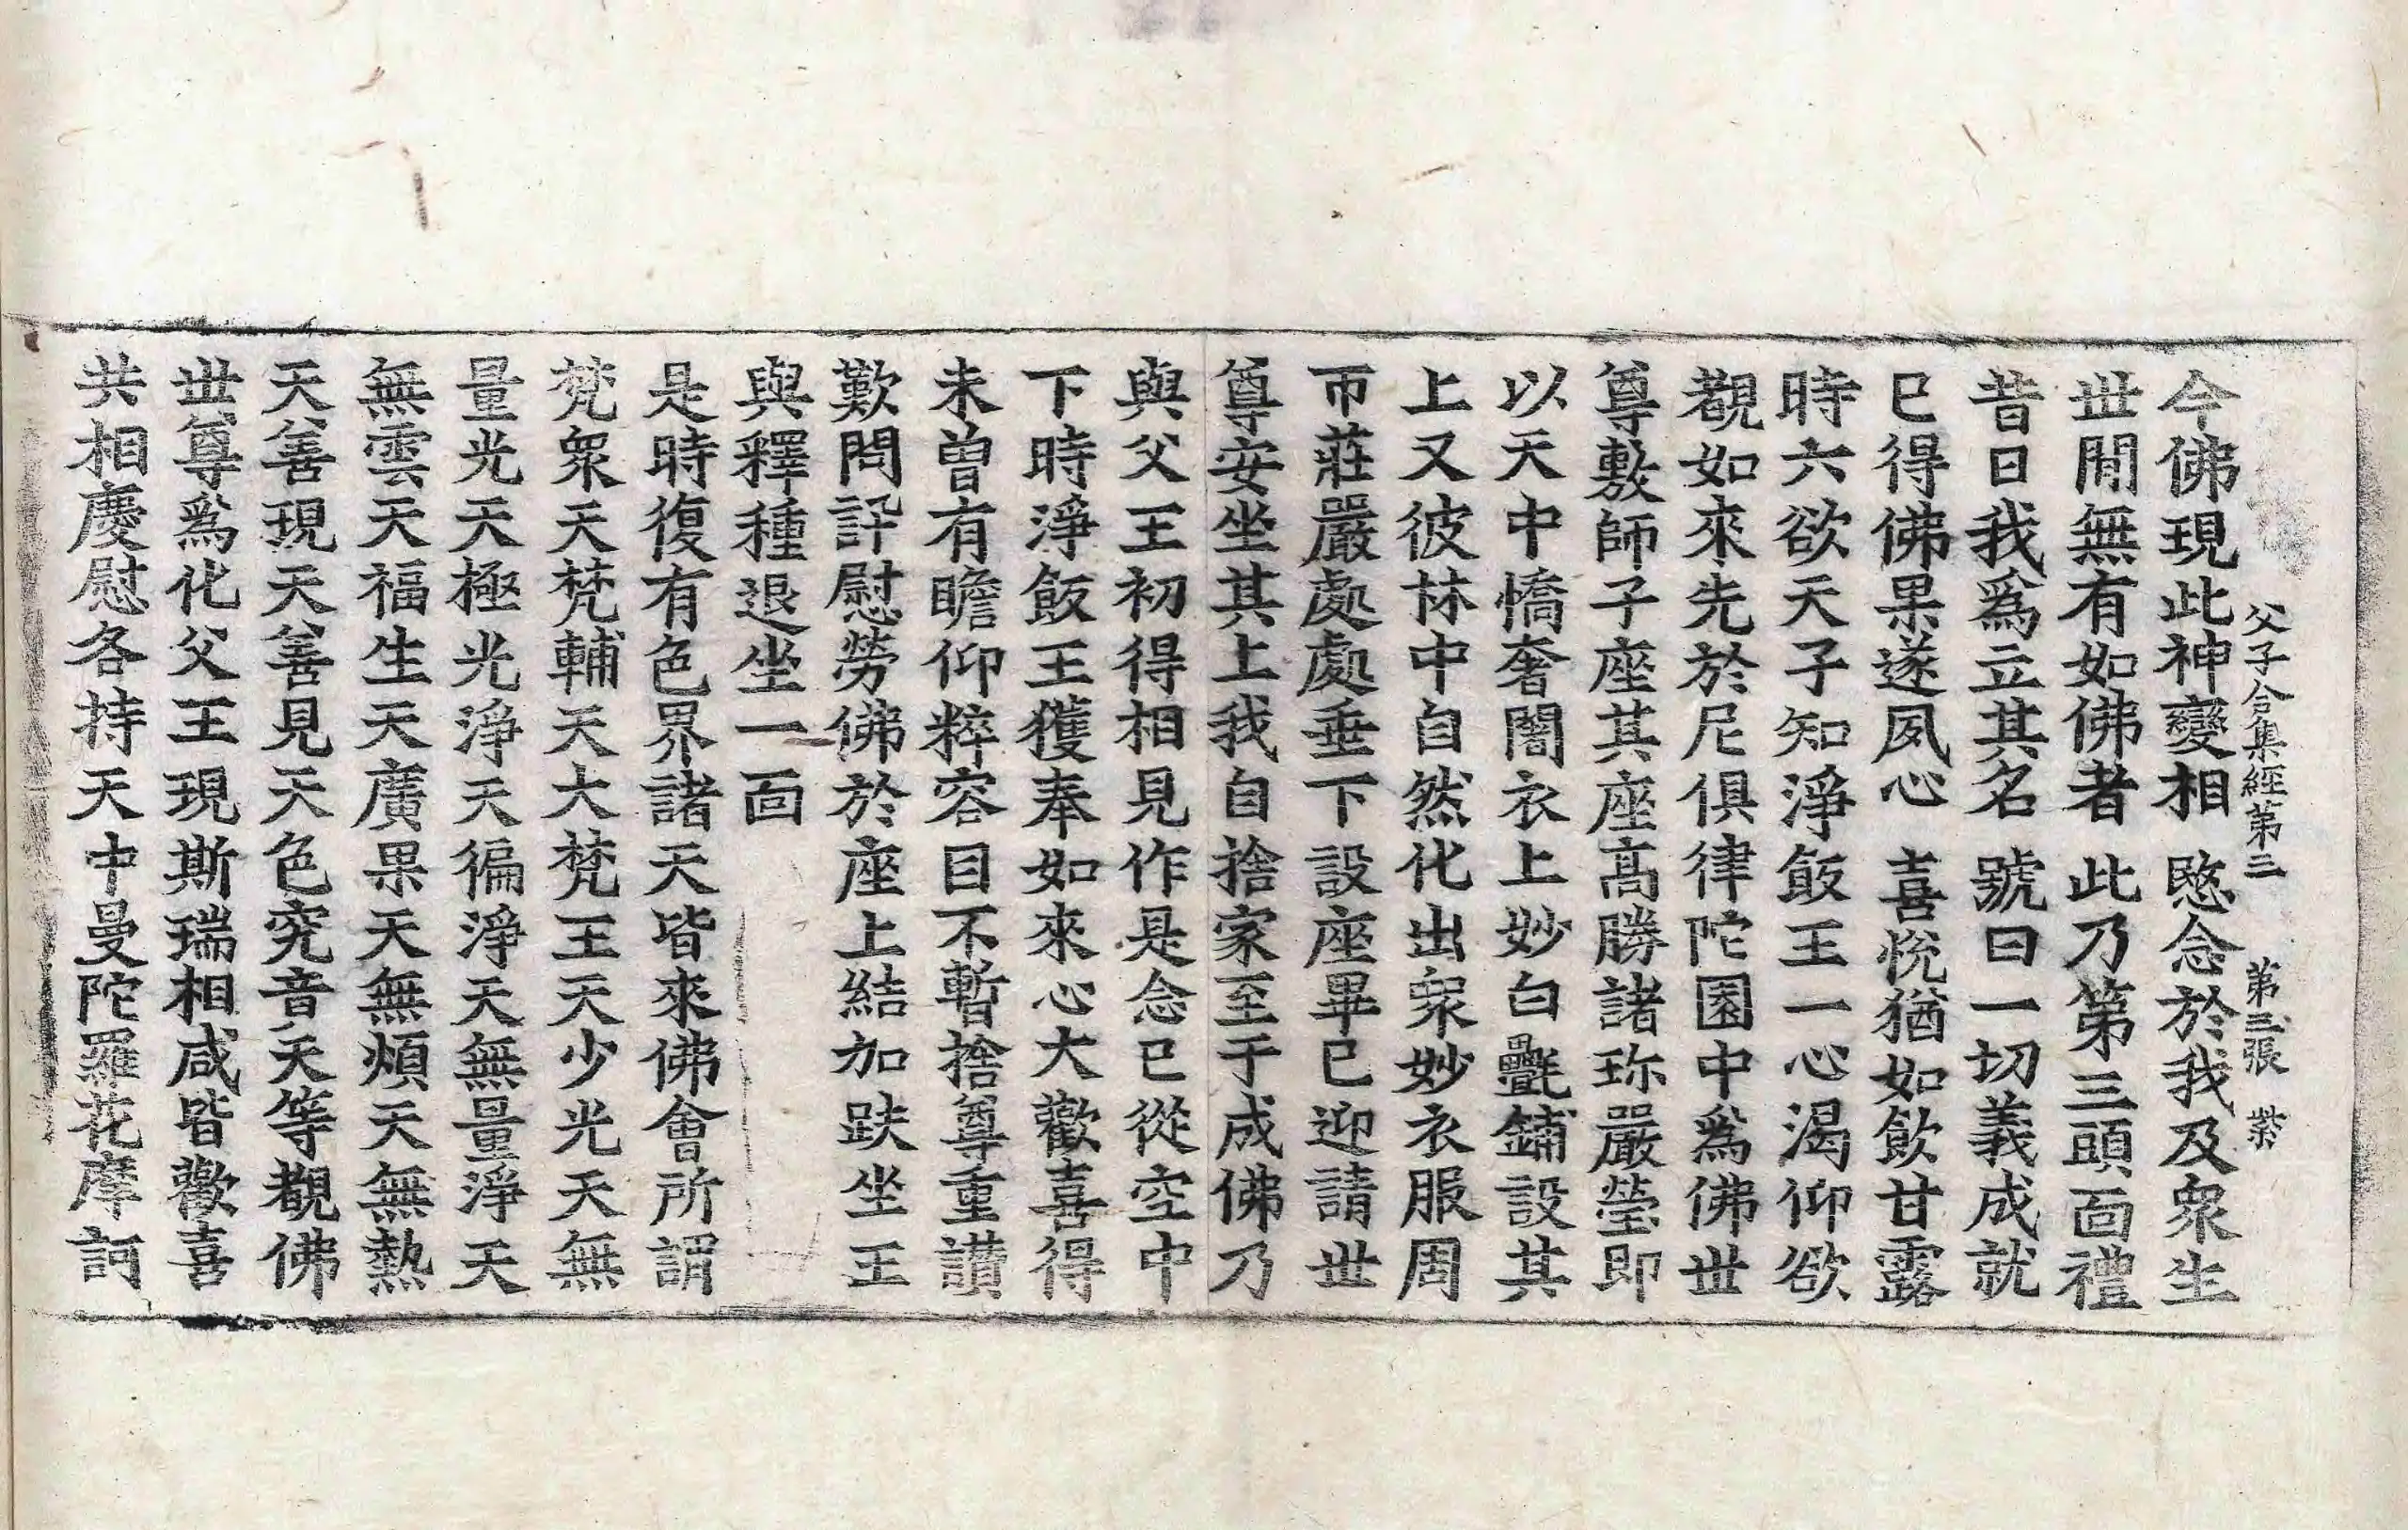 父子合集經第三　第三張　紫
今佛現此神變相　愍念於我及衆生
世間無有如佛者　此乃第三頭面禮
昔日我爲立其名　號曰一切義成就
已得佛果遂夙心　喜悅猶如飮甘露
時六欲天子知淨飯王一心渴仰欲
覩如來先於尼俱律陀園中爲佛世
尊敷師子座其座高勝諸珎嚴瑩即
以天中憍奢闍衣上妙白㲲鋪設其
上又彼林中自然化出衆妙衣服周
帀莊嚴處處垂下設座畢已迎請世
尊安坐其上我自捨家至于成佛乃
與父王初得相見作是念已從空中
下時淨飯王獲奉如來心大歡喜得
未曾有瞻仰粹容目不暫捨尊重讚
歎問訊慰勞佛於座上結加趺坐王
與釋種退坐一面
是時復有色界諸天皆來佛會所謂
梵衆天梵輔天大梵王天少光天無
量光天極光淨天徧淨天無量淨天
無雲天福生天廣果天無煩天無熱
天善現天善見天色究竟天等覩佛
世尊爲化父王現斯瑞相咸皆歡喜
共相慶慰各持天中曼陀羅花摩訶